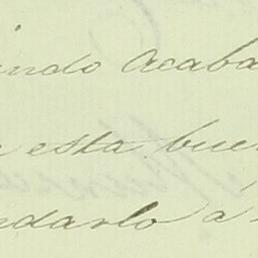 indo acaba
esta bue
ndarlo á